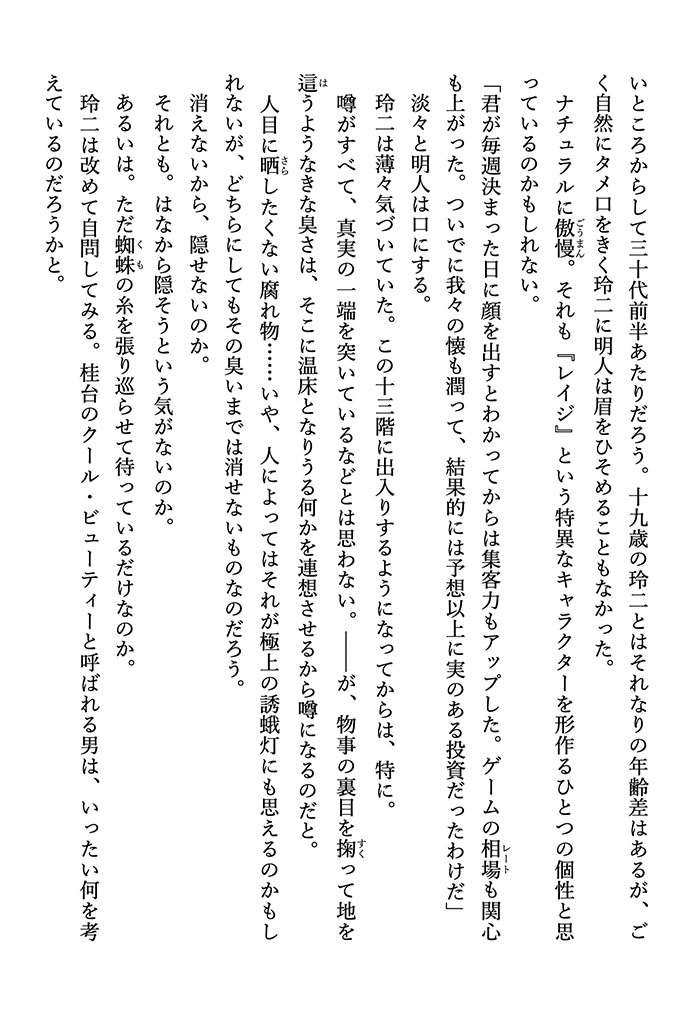 いところからして三十代前半あたりだろう。十九歳の玲二とはそれなりの年齢差はあるが、ご
く自然にタメ口をきく玲二に明人は眉をひそめることもなかった。
ナチュラルに傲慢。それも『レイジ』という特異なキャラクターを形作るひとつの個性と思
っているのかもしれない。
「君が毎週決まった日に顔を出すとわかってからは集客力もアップした。ゲームの相場も関心
も上がった。ついでに我々の懐も潤って、結果的には予想以上に実のある投資だったわけだ」
淡々と明人は口にする。
玲二は薄々気づいていた。この十三階に出入りするようになってからは、特に。
噂がすべて、真実の一端を突いているなどとは思わない。――が、物事の裏目を掬って地を
這うようなきな臭さは、そこに温床となりうる何かを連想させるから噂になるのだと。
人目に晒したくない腐れ物……いや、人によってはそれが極上の誘蛾灯にも思えるのかもし
れないが、どちらにしてもその臭いまでは消せないものなのだろう。
消えないから、隠せないのか。
それとも。はなから隠そうという気がないのか。
あるいは。ただ蜘蛛の糸を張り巡らせて待っているだけなのか。
玲二は改めて自問してみる。桂台のクール・ビューティーと呼ばれる男は、いったい何を考
えているのだろうかと。